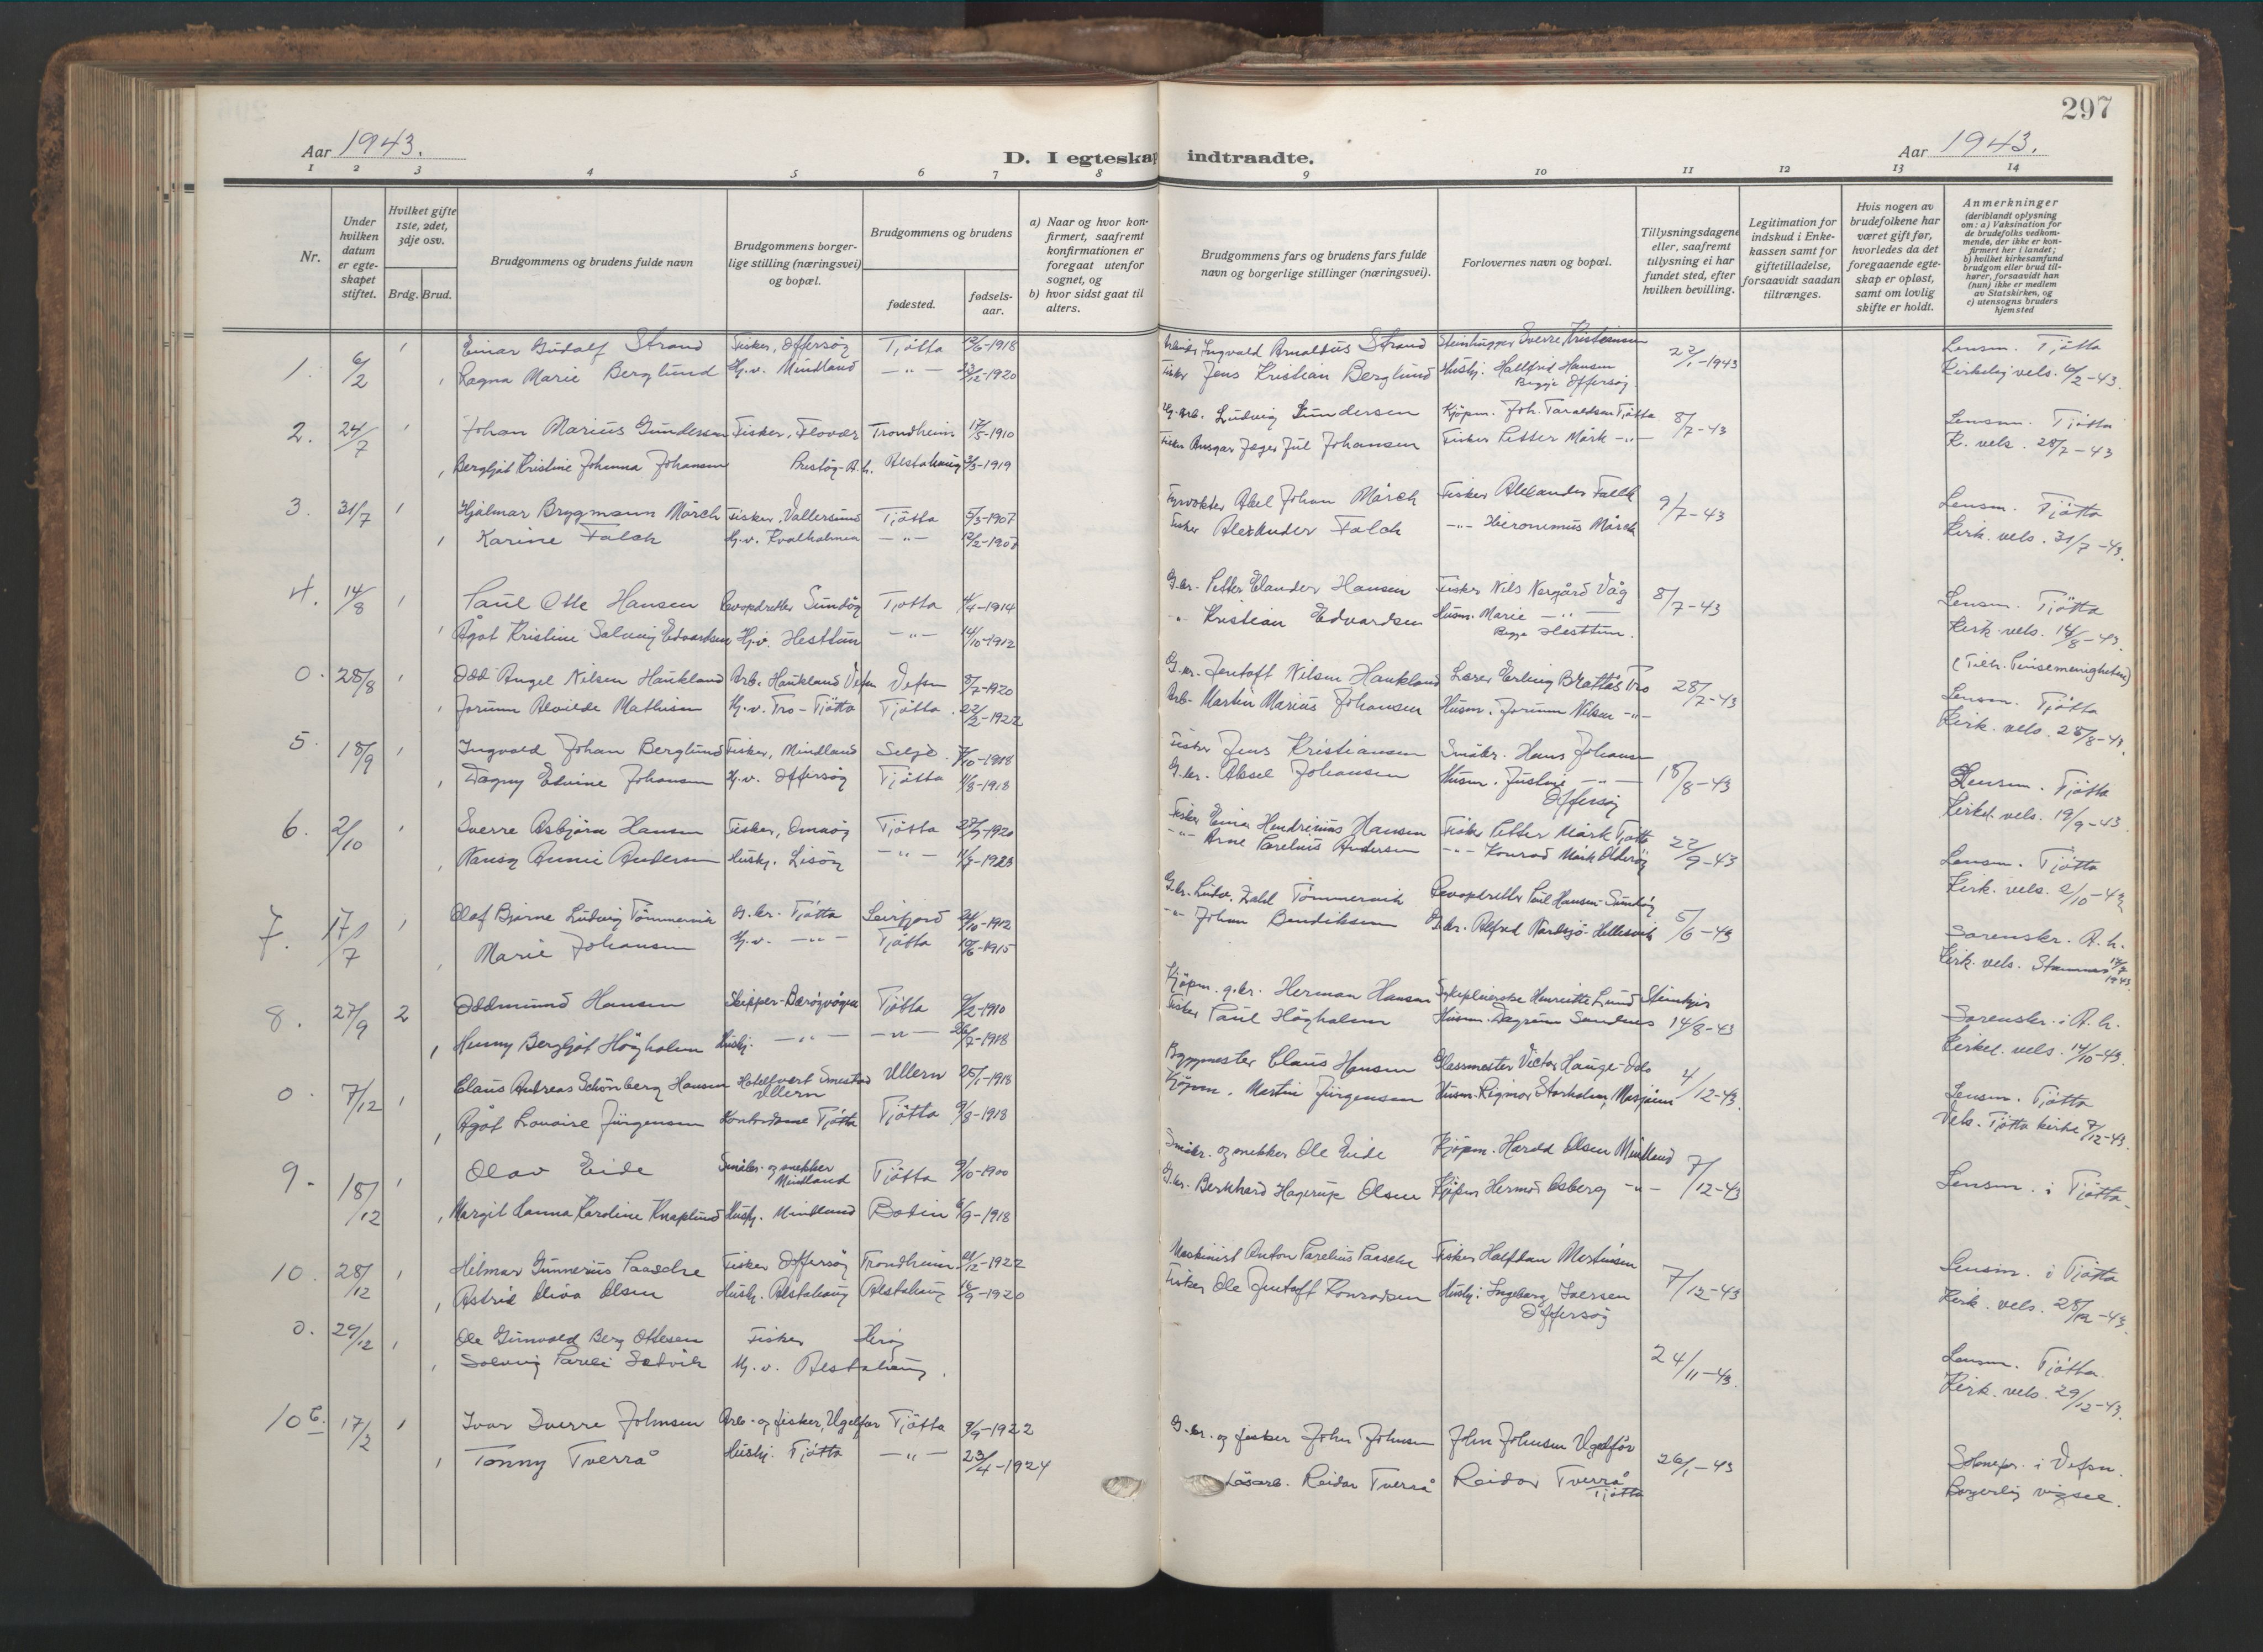 297
Aar 1943.
D. I egteskap indtraadte.
Aar 1943.
1 2 3 4 5 6 7 8 9 10 11 12 13 14
Nr.
Under hvilken datum er egteskapet stiftet.
Hvilket gifte 1ste, 2det, 3dje osv.
Brdg. Brud.
Brudgommens og brudens fulde navn
Brudgommens borgerlige stilling (næringsvei) og bopæl.
Brudgommens og brudens
fødested.
fødselsaar.
a) Naar og hvor konfirmert, saafremt konfirmationen er foregaat utenfor sognet, og
b) hvor sidst gaat til alters.
Brudgommens fars og brudens fars fulde navn og borgerlige stillinger (næringsvei).
Forlovernes navn og bopæl.
Tillysningsdagene eller, saafremt tillysning ei har fundet sted, efter hvilken bevilling.
Legitimation for indskud i Enkekassen samt for giftetilladelse, forsaavidt saadan tiltrænges.
Hvis nogen av brudefolkene har været gift før, hvorledes da det foregaaende egteskap er opløst, samt om lovlig skifte er holdt.
Anmerkninger (deriblandt oplysning om: a) Vaksination for de brudefolks vedkommende, der ikke er konfirmert her i landet; b) hvilket kirkesamfund brudgom eller brud tilhører, forsaavidt han (hun) ikke er medlem av Statskirken, og c) utensogns bruders hjemsted
1. 6/2 1 Einar Gudolf Strand Fisker, Offersøy Tjøtta 12/6-1918 Ingvald Arnaldus Strand Steinhugger Sverre Kristensen 22/1-1943 Lensm. Tjøtta
1 Ragna Marie Berglund Hj.v. Mindland —"— 23/12-1920 Fisker Jens Kristian Berglund Hushj. Hallfrid Hansen Begge Offersøy Kirkelig vels. 6/2-43.
2. 24/7 1 Johan Marius Gundersen Fisker, Flovær Trondheim 17/5-1910 Ludvig Gundersen Kjøpm. Joh. Taraldsen Tjøtta 8/7-43 Lensm. Tjøtta
1 Bergljot Kristine Johanna Johansen Prestøy-A.h. Alstahaug 3/3-1919 Fisker Ansgar Jeger Jul Johansen Fisker Petter Mårk —"— K. vels. 28/7-43
3. 31/7 1 Hjalmar Brygmann Mørch Fisker, Vallersund Tjøtta 5/3-1907 Fyrvokter Axel Johan Mørch Fisker Alexander Falch 9/7-43 Lensm. Tjøtta
1 Karine Falch Hj.v. Kvalholmen —"— Fisker Alexander Falch —"— Hieronimus Mørch Kirk. vels. 31/7-43.
4. 14/8 1 Paul Otte Hansen Revopdretter Sundøy Tjøtta 4/4-1914 G.br. Petter Elander Hansen Fisker Nils Norgård Våg 8/7-43 Lensm. Tjøtta
1 Ågot Kristine Solveig Edvardsen Hj.v. Hesttun —"— 14/10-1912 " Kristian Edvardsen Husm. Marie —"— Begge Hesttun. Kirk. vels. 14/8-43.
(Tilh. Pinsemenigheten)
0. 28/8 1 Odd Angel Nilsen Haukland Arb. Haukland Vefsn Vefsn 8/7-1920 G.br. Jentoft Nilsen Haukland Lærer Erling Brattås Tro 28/7-43 Lensm. Tjøtta
1 Jorunn Alvilde Mathisen Hj.v. Tro-Tjøtta Tjøtta 22/2-1922 Arb. Martin Marius Johansen Husm. Jorunn Nilsen —"— Kirk. vels. 28/8-43.
5. 18/9 1 Ingvald Johan Berglund Fisker, Mindland Selje 7/10-1918 Fisker Jens Kristiansen Småbr. Hans Johansen 18/8-43 Lensm. Tjøtta
1 Dagny Edvine Johansen Hj.v. Offersøy Tjøtta 11/8-1918 G.br. Aksel Johansen Husm. Justine —"— Offersøy Kirkel. vels. 19/9-43.
6. 2/10 1 Sverre Asbjørn Hansen Fisker, Omnøy Tjøtta 27/7-1920 Fisker Einar Hendrinius Hansen Fisker Petter Mårk Tjøtta 22/9-43 Lensm. Tjøtta
1 Nansy Annie Andersen Hushj. Lisøy —"— 11/3-1923 —"— Arne Parelius Andersen —"— Konrad Mårk Olderøy Kirk. vels. 2/10-43
7. 17/7 1 Olaf Bjarne Ludvig Tømmervik G.br. Tjøtta Leirfjord 24/10-1912 G.br. Ludv. Dahl Tømmervik Revopdretter Paul Hansen-Sundøy 5/6-43 Sorenskr. A.h.
1 Marie Johansen Hj.v. —"— Tjøtta 10/6-1915 —"— Johan Bendiksen G.br. Alfred Nordsjø-Hellesvik Kirk. vels. Stamnes 17/7 1943.
8. 27/9 2 Oddmund Hansen Skipper-Bærøyvågen Tjøtta 9/2-1910 Kjøpm. g.br. Herman Hansen Sykepleierske Henriette Lund Steinkjer 14/8-43 Sorenskr. i A.h.
1 Henny Bergljot Høgholm Hushj. —"— —"— 26/7-1918 Fisker Paul Høgholm Husm. Dagrun Sandnes Kirkel. vels. 14/10-43.
0. 7/12 1 Claus Andreas Schønberg Hansen Hotelvert Smestad Ullern Ullern 25/1-1918 Byggmester Claus Hansen Glassmester Victor Hauge-Oslo 4/12-43. Lensm. Tjøtta
1 Ågot Lovaise Jürgensen Kontordame Tjøtta Tjøtta 9/8-1918 Kjøpm. Martin Jürgensen Husm. Rigmor Storholm, Mosjøen Vels. Tjøtta kirke 7/12-43.
9. 18/12 1 Olav Eide Småbr. og snekker Mindland Tjøtta 9/10-1900 Småbr. og snekker Ole Eide Kjøpm. Harald Olsen Mindland 7/12-43 Lensm. i Tjøtta
1 Margit Hanna Karoline Knaplund Hushj. Mindland Bodin 6/9-1918 G.br. Bernhard Hagerup Olsen Kjøpm Hermod Osberg —"—
10. 28/12 1 Hilmar Gunnerius Paasche Fisker Offersøy Trondheim 21/12-1922 Maskinist Anton Parelius Paasche Fisker Halfdan Martinsen 7/12-43 Lensm. i Tjøtta
1 Astrid Oliva Olsen Hushj. Alstahaug Alstahaug 16/9-1920 Fisker Ole Jentoft Konradsen Hushj. Ingeborg Iversen Offersøy Kirk. vels. 28/12-43.
0. 29/12 1 Ole Gunvald Berg Ottesen Fisker Herøy 24/11-43. Lensm. Tjøtta
1 Solveig Pareli Sætvik Hj.v. Alstahaug. Kirk. vels. 29/12-43.
10 b. 17/2 1 Ivar Sverre Johnsen Arb.- og fisker, Ugelfor Tjøtta 9/9-1922 G.br. og fisker John Johnsen John Johnsen Ugelfor 26/1-43 Sorenskr. i Vefsn.
1 Tonny Tverrå Hushj. Tjøtta —"— 23/4-1924 Løsarb. Reidar Tverrå Reidar Tverrå Tjøtta Borgerlig vigsel.